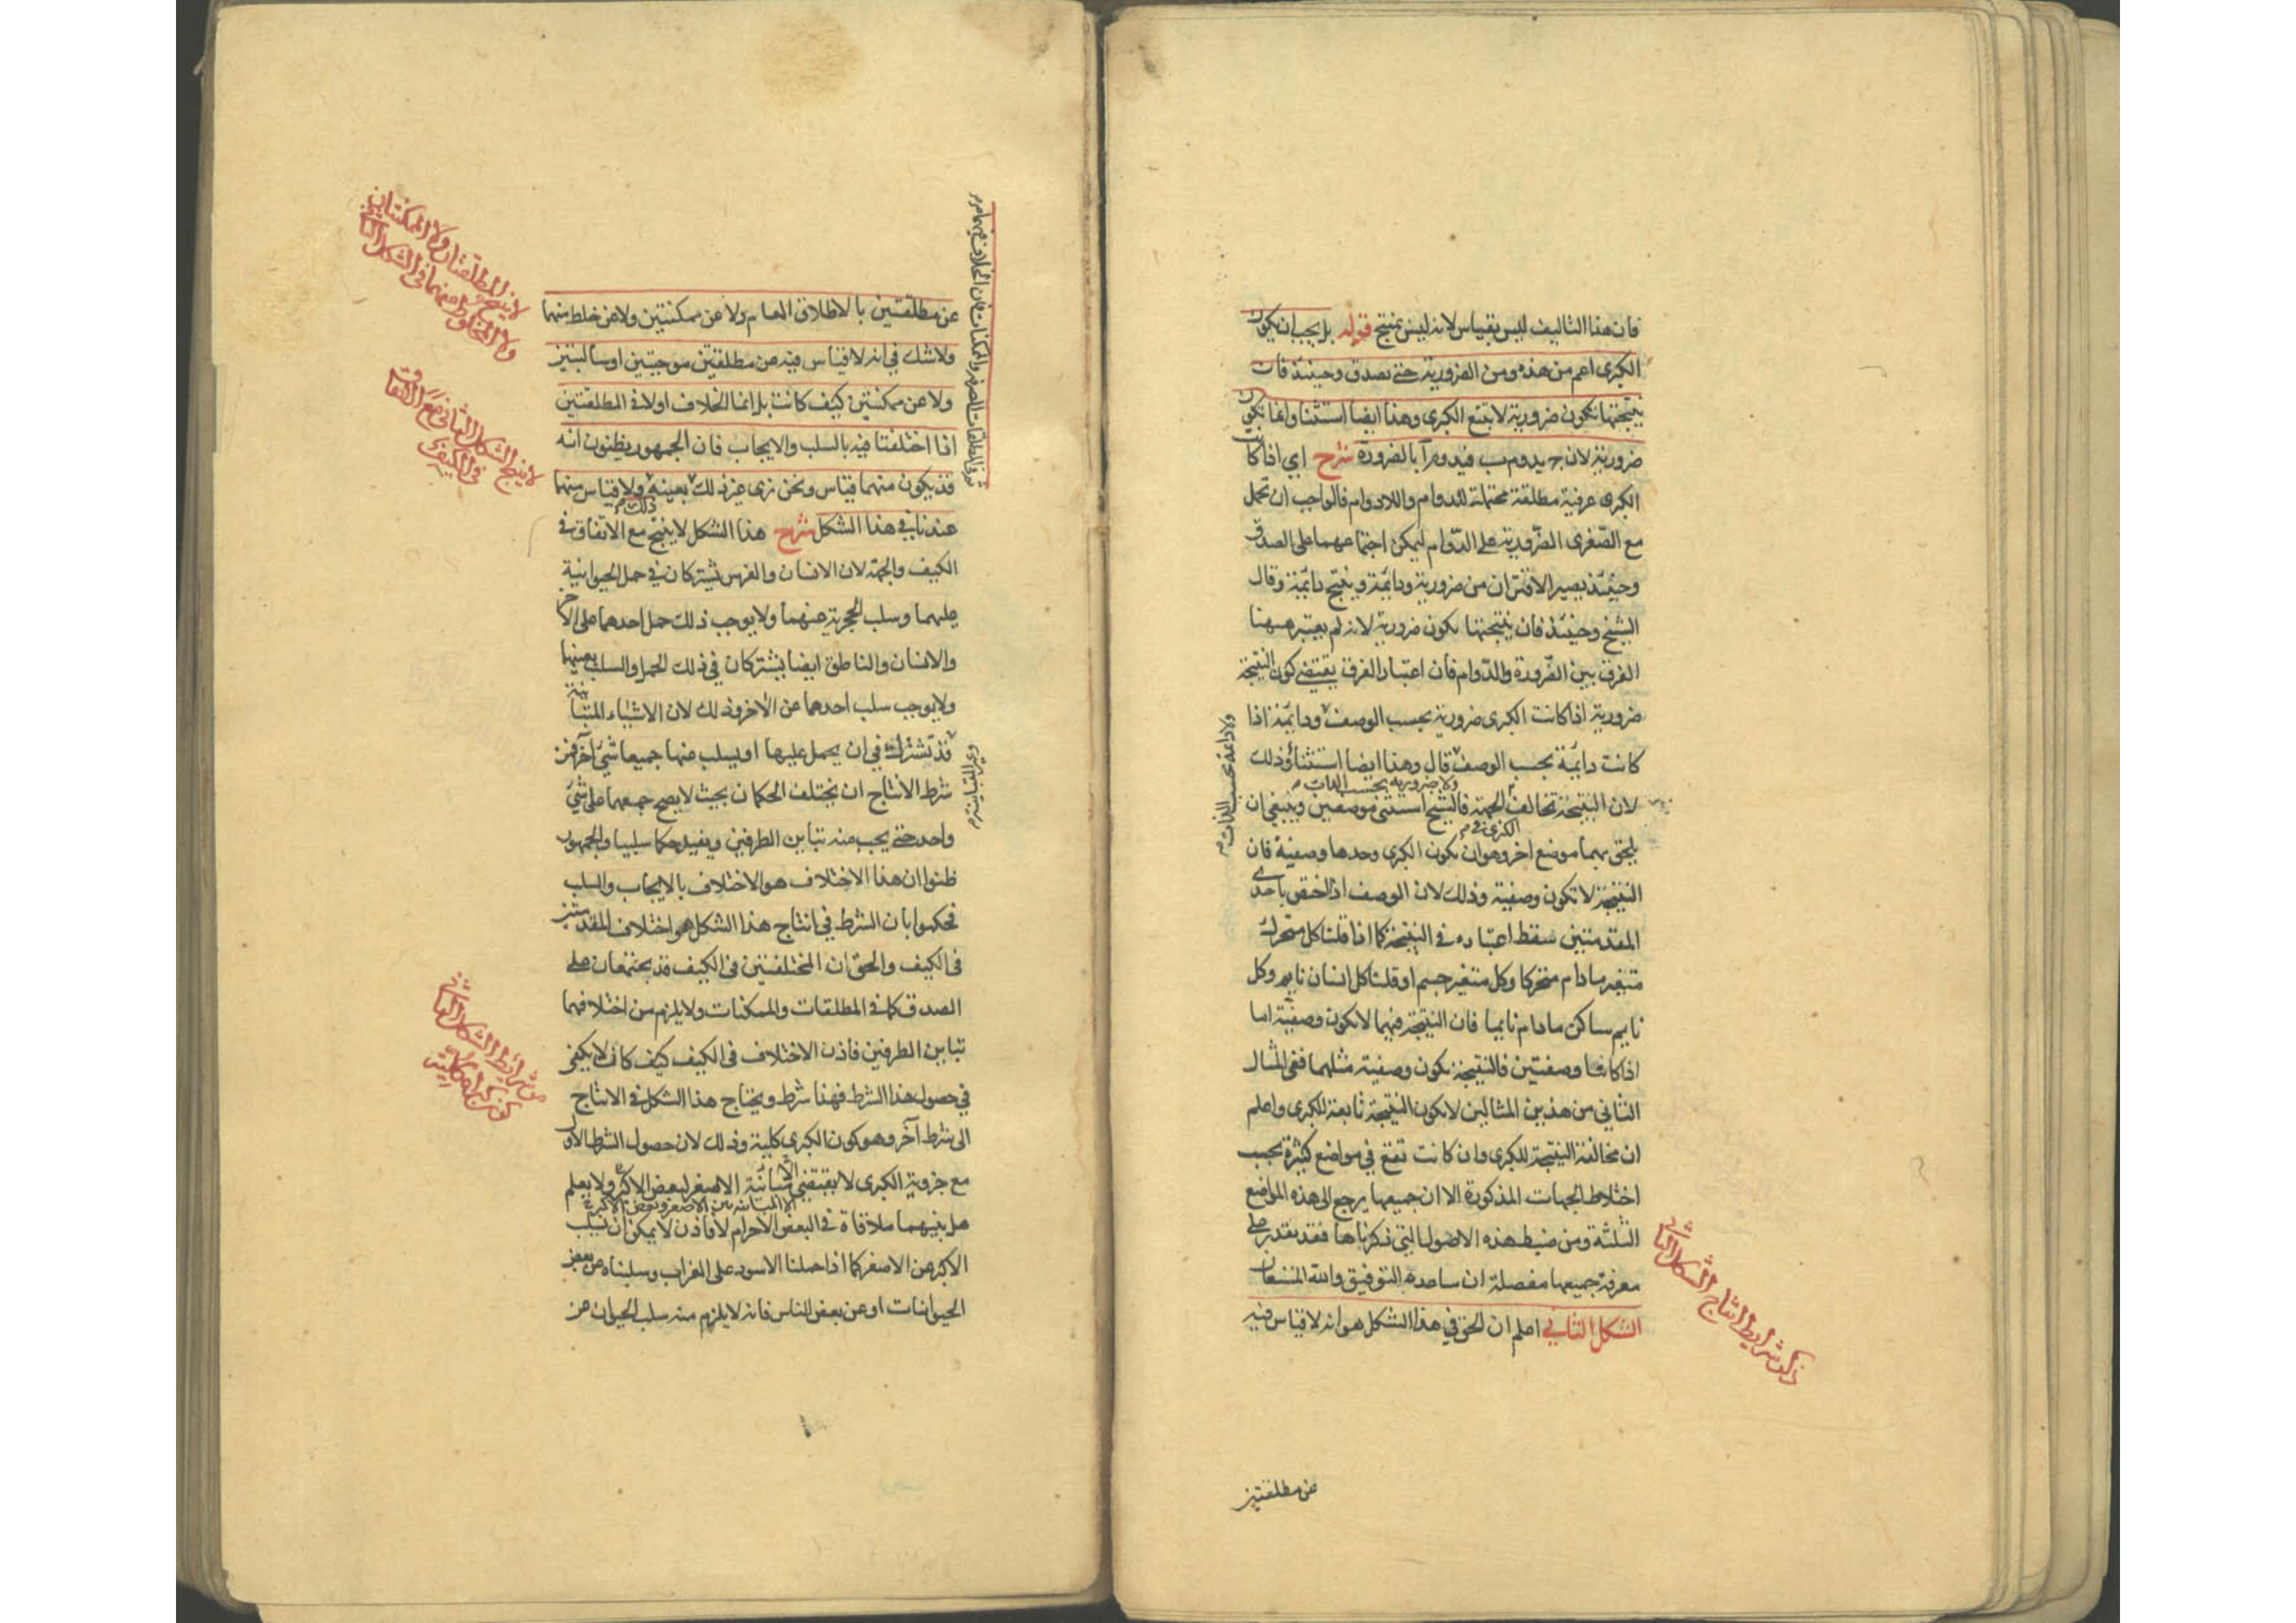 فان هذا التاليف ليس بقياس لانه ليس بمنتج قوله بل يجب ان يكون
الكبرى اعم من هذه ومن الضرورية حتى تصدق وحينئذ فان
نتيجتها تكون ضرورية لا تتبع الكبرى وهذا ايضا استثنا وانما تكون
ضرورية لان ج يدوم ب فيدوم آ بالضرورة شرح اي اذا كانت
الكبرى عرفية مطلقة محتملة للدوام واللادوام فالواجب ان تحمل
مع الصغرى الضرورية على الدوام ليمكن اجتماعهما على الصدق
وحينئذ يصير الاقتران من ضرورية ودائمة وينتج دائمة وقال
الشيخ وحينئذ فان نتيجتها تكون ضرورية لانه لم يعتبر ههنا
الفرق بين الضرورة والدوام فان اعتبار الفرق يقتضي كون النتيجة
ضرورية اذا كانت الكبرى ضرورية بحسب الوصف ودائمة اذا
كانت دائمة بحسب الوصف قال وهذا ايضا استثناء وذلك
ولا ضرورية بحسب الذات
ولا دائمة بحسب الذات
لان النتيجة تخالف الجهة فالشيخ استثنى موضعين وينبغي ان
الكبرى في
يلحق بهما موضع اخر وهو ان يكون الكبرى وحدها وصفية فان
النتيجة لا تكون وصفية وذلك لان الوصف اذا اختص باحدى
المقدمتين سقط اعتباره في النتيجة كما اذا قلنا كل متحرك
متغير ما دام متحركا وكل متغير جسم او قلنا كل انسان نايم وكل
نايم ساكن ما دام نايما فان النتيجة فيهما لا تكون وصفية اما
اذا كانتا وصفيتين فالنتيجة تكون وصفية مثلهما ففي المثال
الثاني من هذين المثالين لا تكون النتيجة تابعة للكبرى واعلم
ان مخالفة النتيجة للكبرى وان كانت تقع في مواضع كثيرة بحسب
اختلاط الجهات المذكورة الا ان جميعها يرجع الى هذه المواضع
الثلثة ومن ضبط هذه الاصول التي ذكرناها فقد يقدر على
معرفة جميعها مفصلة ان ساعده التوفيق والله المستعان
الشكل الثاني اعلم ان الحق في هذا الشكل هو انه لا قياس فيه
ذكر شرايط انتاج الشكل الثاني
عن مطلقتين
عن مطلقتين بالاطلاق العام ولا عن ممكنتين ولا عن خلط منهما
ولا شك في انه لا قياس فيه من مطلقتين موجبتين او سالبتين
ولا عن ممكنتين كيف كانت بل انما الخلاف اولا في المطلقتين
اذا اختلفتا فيه بالسلب والايجاب فان الجمهور يظنون انه
قد يكون منهما قياس ونحن نرى غير ذلك بعينه ولا قياس منهما
ثم في المطلقات الصرفة والممكنات فان الخلاف فيهما
عندنا في هذا الشكل شرح هذا الشكل لا ينتج مع الاتفاق في
الكيف والجهة لان الانسان والفرس تشتركان في حمل الحيوانية
عليهما وسلب الحجرية عنهما ولا يوجب ذلك حمل احدهما على الاخر
والانسان والناطق ايضا يشتركان في ذلك الحمل والسلب بعينهما
ولا يوجب سلب احدهما عن الاخر وذلك لان الاشياء المتباينة
وغير المتباينة
قد تشترك في ان يحمل عليها او يسلب منها جميعا شيء آخر فمن
شرط الانتاج ان يختلف الحكمان بحيث لا يصح جمعهما على شيء
واحد حتى يجب منه تباين الطرفين ويفيد حكما سلبيا والجمهور
ظنوا ان هذا الاختلاف هو الاختلاف بالايجاب والسلب
فحكموا بان الشرط في انتاج هذا الشكل هو اختلاف المقدمتين
في الكيف والحق ان المختلفتين في الكيف قد يجتمعان على
الصدق كما في المطلقات والممكنات ولا يلزم من اختلافهما
تباين الطرفين فاذن الاختلاف في الكيف كيف كان لا يكفي
في حصول هذا الشرط فهذا شرط ويحتاج هذا الشكل في الانتاج
الى شرط آخر وهو كون الكبرى كلية وذلك لان حصول الشرط الاول
مع جزوية الكبرى لا يقتضي الا مباينة الاصغر لبعض الاكبر ولا يعلم
الا المباينة بين الاصغر وبعض الاكبر
هل بينهما ملاقاة في البعض الاخر ام لا فاذن لا يمكن ان يسلب
الاكبر عن الاصغر كما اذا حملنا الاسود على الغراب وسلبناه عن بعض
الحيوانات او عن بعض الناس فانه لا يلزم منه سلب الحيوان عن
لا ينتج المطلقتان ولا الممكنتان
ولا المخلوط منهما في الشكل الثاني
لا ينتج الشكل الثاني مع الاتفاق
في الكيف
من شرايط الشكل الثاني
كون كبراه كلية